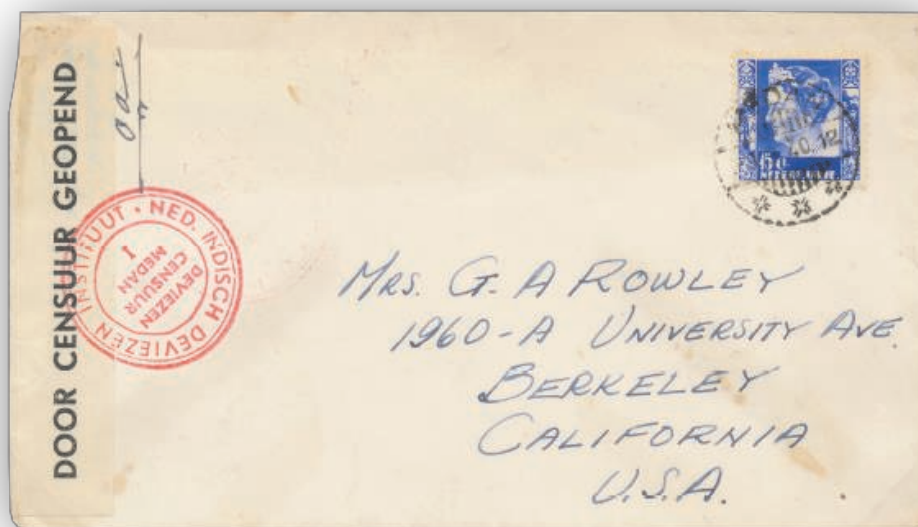 DOOR CENSUUR GEOPEND
NED. INDISCH DEVIEZEN INSTITUUT ·
DEVIEZEN
CENSUUR
MEDAN
1
MRS. G. A ROWLEY
1960-A UNIVERSITY AVE.
BERKELEY
CALIFORNIA
U.S.A.